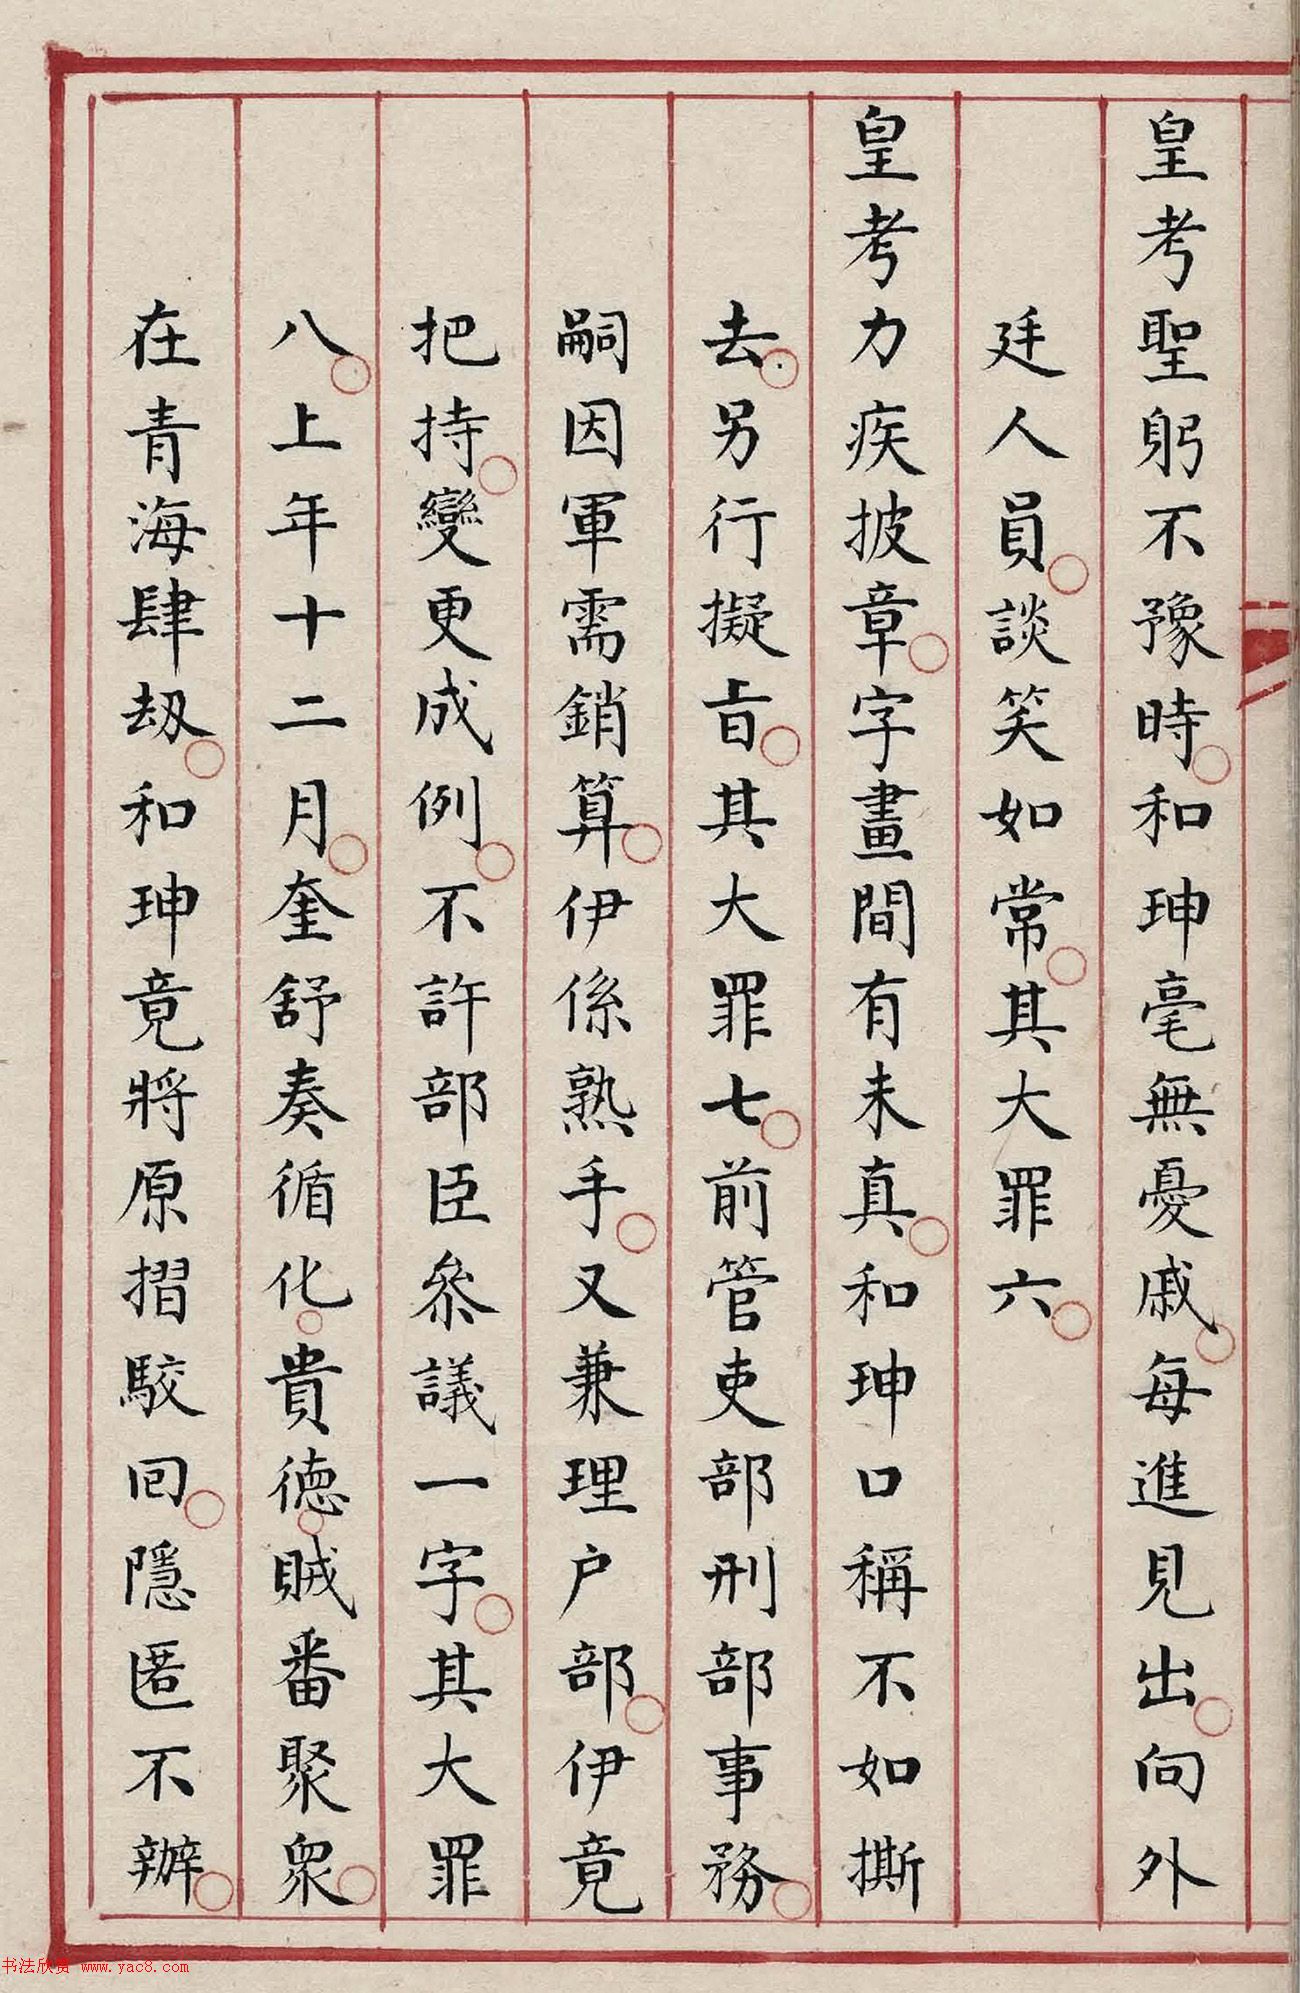 皇考聖躬不豫時和珅毫無憂戚每進見出向外
廷人員談笑如常其大罪六
皇考力疾披章字畫間有未真和珅口稱不如撕
去另行擬旨其大罪七前管吏部刑部事務
嗣因軍需銷算伊係熟手又兼理户部伊竟
把持變更成例不許部臣叅議一字其大罪
八上年十二月奎舒奏循化貴德賊番聚衆
在青海肆刼和珅竟將原摺駮回隱匿不辦
书法欣赏 www.yac8.com